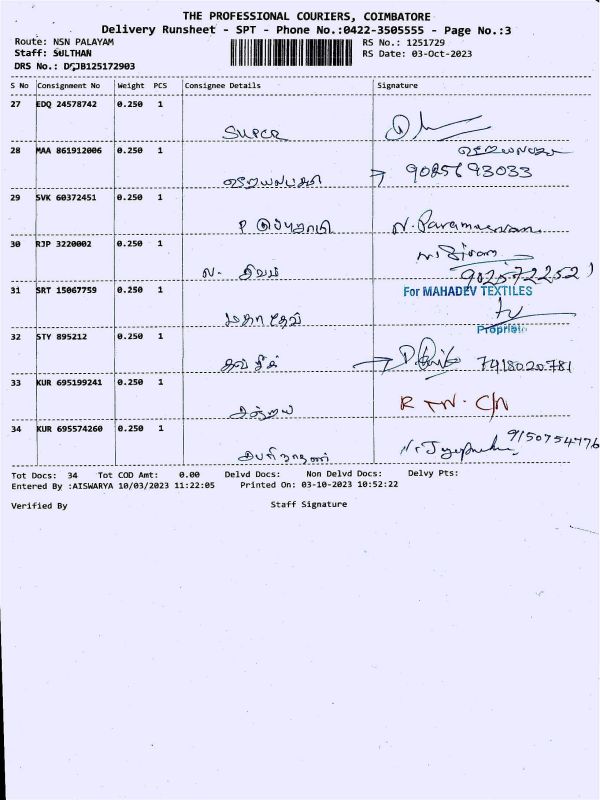 THE PROFESSIONAL COURIERS, COIMBATORE
Delivery Runsheet - SPT - Phone No.:0422-3505555 - Page No.:3
Route: NSN PALAYAM RS No.: 1251729
Staff: SULTHAN RS Date: 03-Oct-2023
DRS No.:
S No Consignment No Weight PCS Consignee Details Signature
27 EDQ 24578742 0.250 1
SUPER
28 MAA 861912006 0.250 1
9025693033
29 SVK 60372451 0.250 1
P N. Parameswaran
30 RJP 3220002 0.250 1
N. சிவம் N. Sivam
9025722521
31 SRT 15067759 0.250 1 For MAHADEV TEXTILES
மகாதேவ்
Proprietor
32 STY 895212 0.250 1
7418020781
33 KUR 695199241 0.250 1
RTN. C/N
34 KUR 695574260 0.250 1
9150754776
Tot Docs: 34 Tot COD Amt: 0.00 Delvd Docs: Non Delvd Docs: Delvy Pts:
Entered By :AISWARYA 10/03/2023 11:22:05 Printed On: 03-10-2023 10:52:22
Verified By Staff Signature